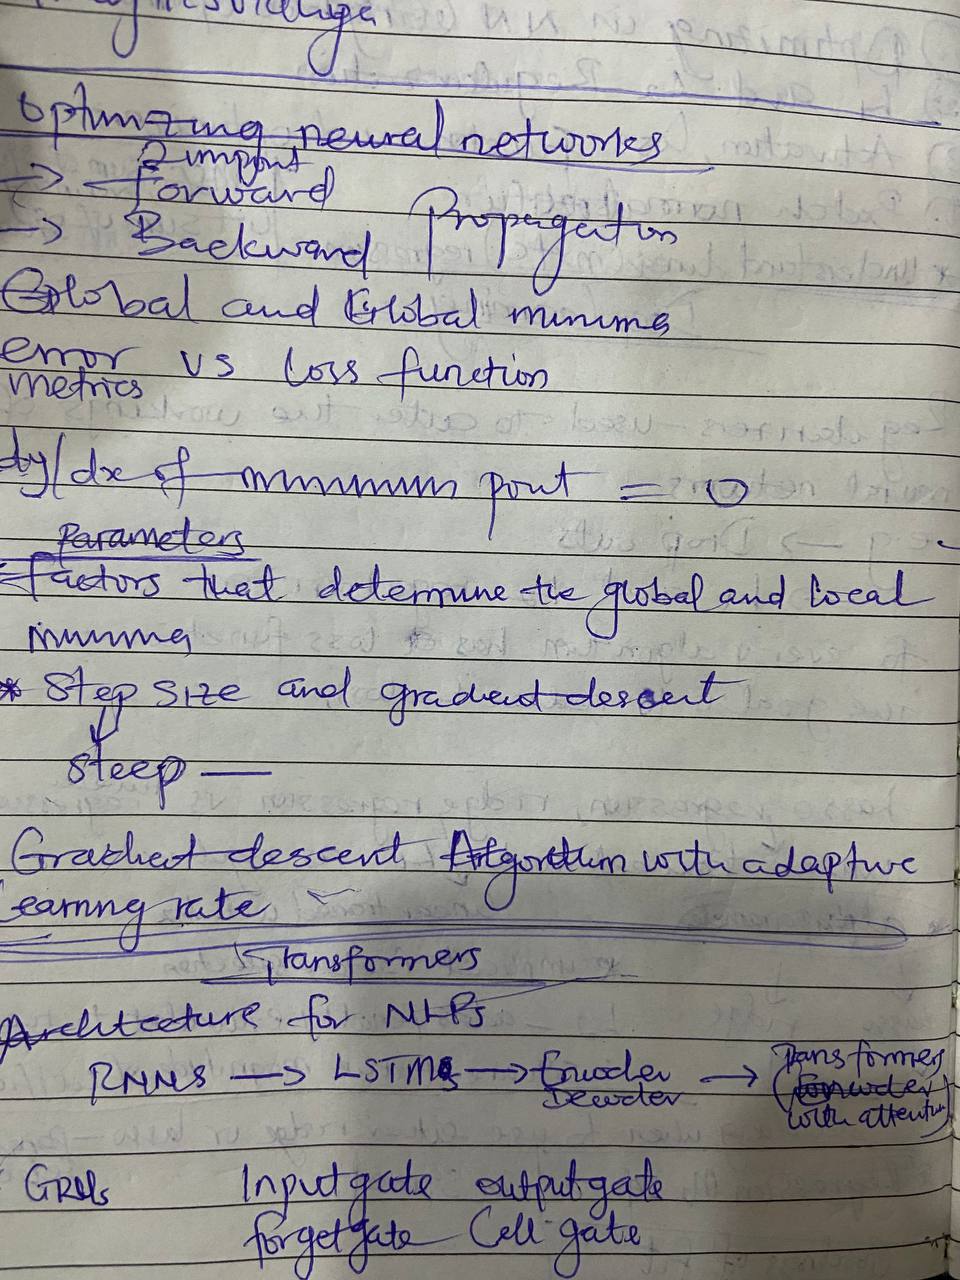 optimizing neural networks
2 import
→ Forward
→ Backward Propagation
Global and Global minima
error vs loss function
metrics
dy/dx of minimum point = 0
Parameters
Factors that determine the global and local
minima
* Step size and gradient descent
steep —
Gradient descent Algorithm with adaptive
learning rate
Transformers
Architecture for NLPs
RNNs → LSTMs → Encoder Decoder → Transformers (Encoder with attention)
GRUs Input gate output gate
forget gate Cell gate